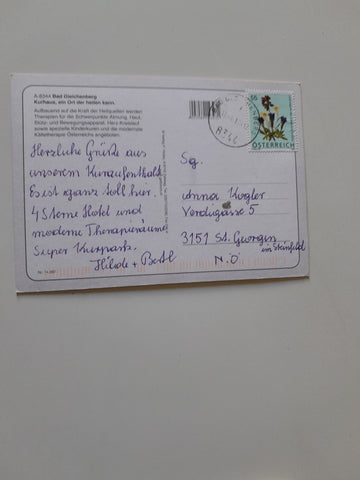 A-8344 Bad Gleichenberg
Kurhaus, ein Ort der heilen kann.
Aufbauend auf die Kraft der Heilquellen werden
Therapien für die Schwerpunkte Atmung, Haut,
Stütz- und Bewegungsapparat, Herz-Kreislauf
sowie spezielle Kinderkuren und die modernste
Kältetherapie Österreichs angeboten.
Herzliche Grüße aus
unserem Kuraufenthalt.
Es ist ganz toll hier.
4 Sterne Hotel und
moderne Therapieräume
Super Kurpark.
Hilde + Bertl
55
ÖSTERREICH
Sg.
Anna Kogler
Verdigasse 5
3151 St. Georgen
im Steinfeld
N.Ö